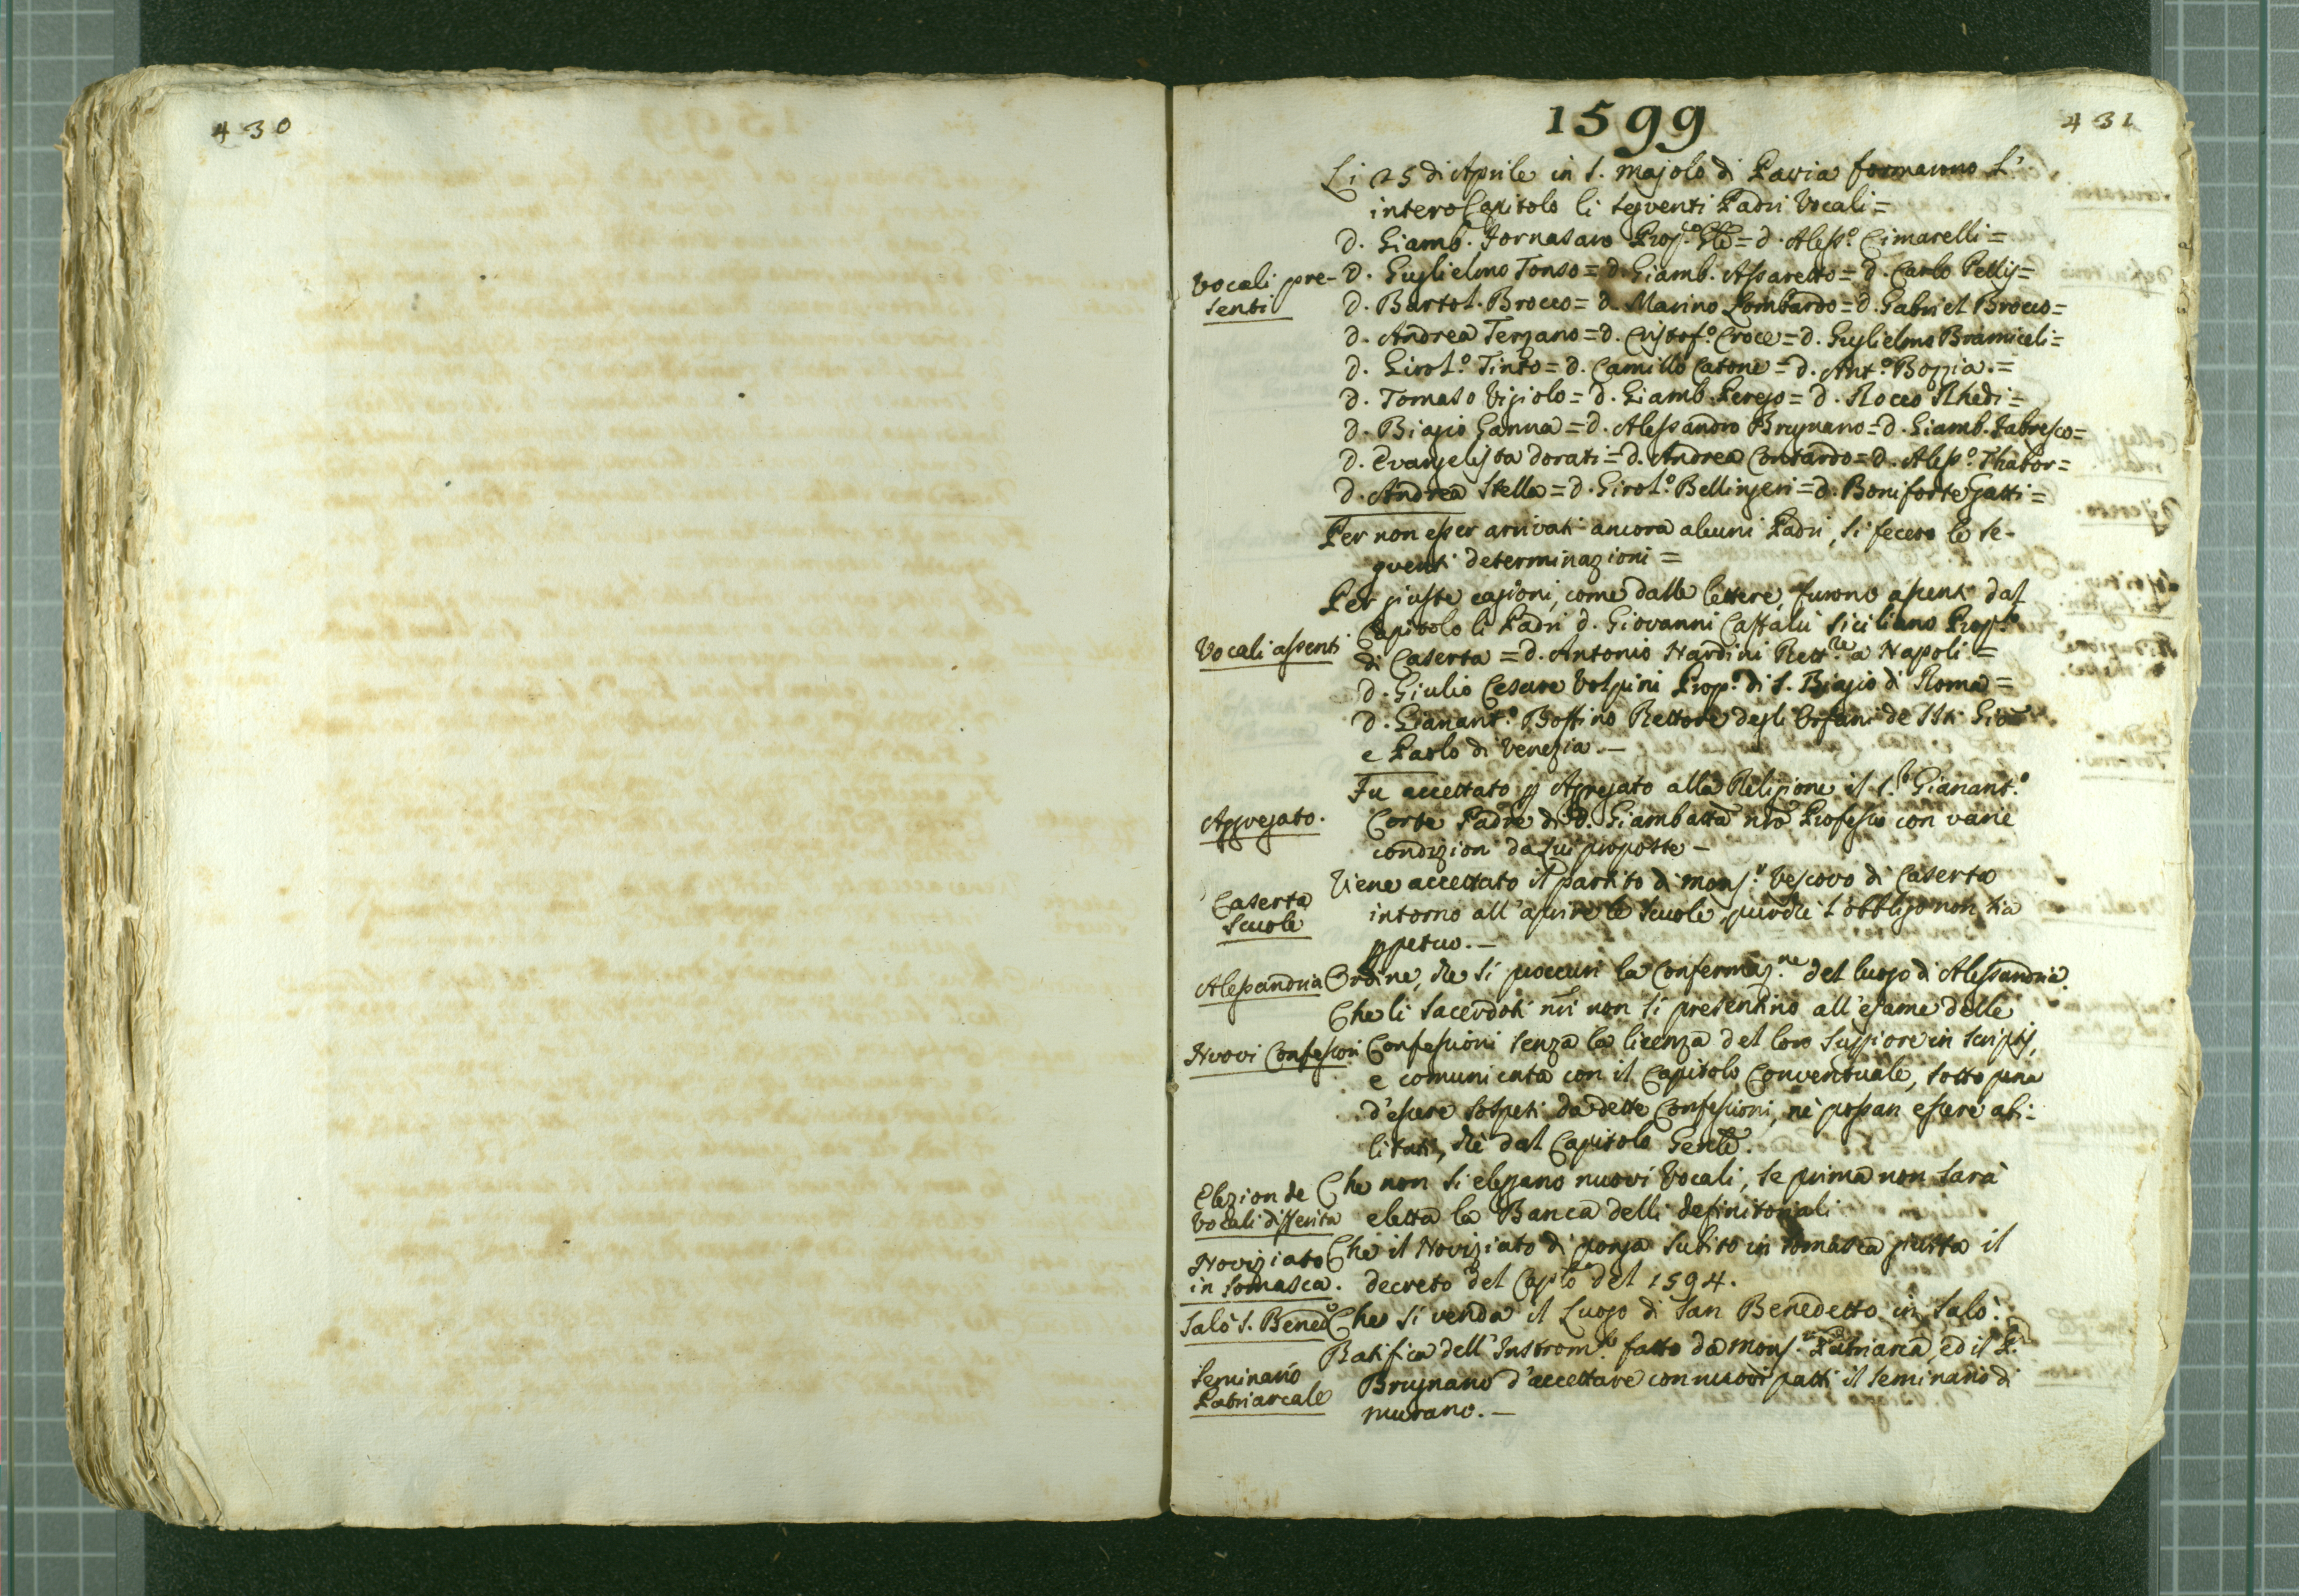 430
1599
431
Li 25 di Aprile in S. Majolo di Pavia formarono l'
intero Capitolo li seguenti Padri Vocali =
D. Giamb. Fornasaro Prop.o Gle = D. Aless.o Cimarelli =
Vocali pre-
senti
D. Guglielmo Tonso = D. Giamb. Assaretto = D. Carlo Pellij =
D. Bartol. Brocco = D. Marino Lombardo = D. Gabriel Brocco =
D. Andrea Terzano = D. Cristof.o Croce = D. Guglielmo Bramiceli =
D. Girol.o Tinto = D. Camillo Catone = D. Ant.o Bozzia. =
D. Tomaso Vigiolo = D. Giamb. Perego = D. Rocco Rhedi =
D. Biagio Ganna = D. Alessandro Brugnano = D. Giamb. Fabresco =
D. Evangelista Dorati = D. Andrea Contardo = D. Aless.o Thabor =
D. Andrea Stella = D. Girol.o Bellingeri = D. Boniforte Gatti =
Per non esser arrivati ancora alcuni Padri, si fecero le se-
guenti determinazioni =
Per giuste cagioni, come dalle lettere, furono assenti dal
Vocali assenti
Capitolo li Padri D. Giovanni Castalii Siciliano Prop.to
di Caserta = D. Antonio Nardini Rett.re a Napoli =
D. Giulio Cesare Volpini Prop.o di S. Biagio di Roma =
D. Gianant.o Bossino Rettore degli Orfani de SSti Gio
e Paolo di Venezia. -
Fu accettato p Agregato alla Religione il S.r Gianant.o
Aggregato.
Corte Padre di D. Giambatta nro Professo con varie
condizioni da lui proposte -
Caserta
Scuole
Viene accettato il partito di Mons.r Vescovo di Caserta
intorno all'aprire le scuole, purchè l'obbligo non sia
ppetuo. -
Alessandria
Ordine, che si procuri la Confermaz.ne del luogo di Alessandria.
Che li Sacerdoti nri non si presentino all'esame delle
Nuovi Confessori
Confessioni senza la licenza del loro Suppiore in scriptij,
e comunicata con il Capitolo Conventuale, sotto pena
d'essere sospesi da dette Confessioni, nè possan essere abi-
litati, chè dal Capitolo Genle.
Elezion de
Vocali differita
Che non si elegano nuovi Vocali, se prima non sarà
eletta la Banca delli Definitoriali
Noviziato
in Somasca.
Che il Noviziato di ponga subito in Somasca giusta il
decreto del Caplo del 1594.
Salò S. Bened.o
Che si venda il Luogo di San Benedetto in Salò.
Seminario
Patriarcale
Ratifica dell'Instrom.to fatto da Mons.r Patriarca, ed il P.
Brugnano d'accettare con nuovi patti il Seminario di
Murano. -